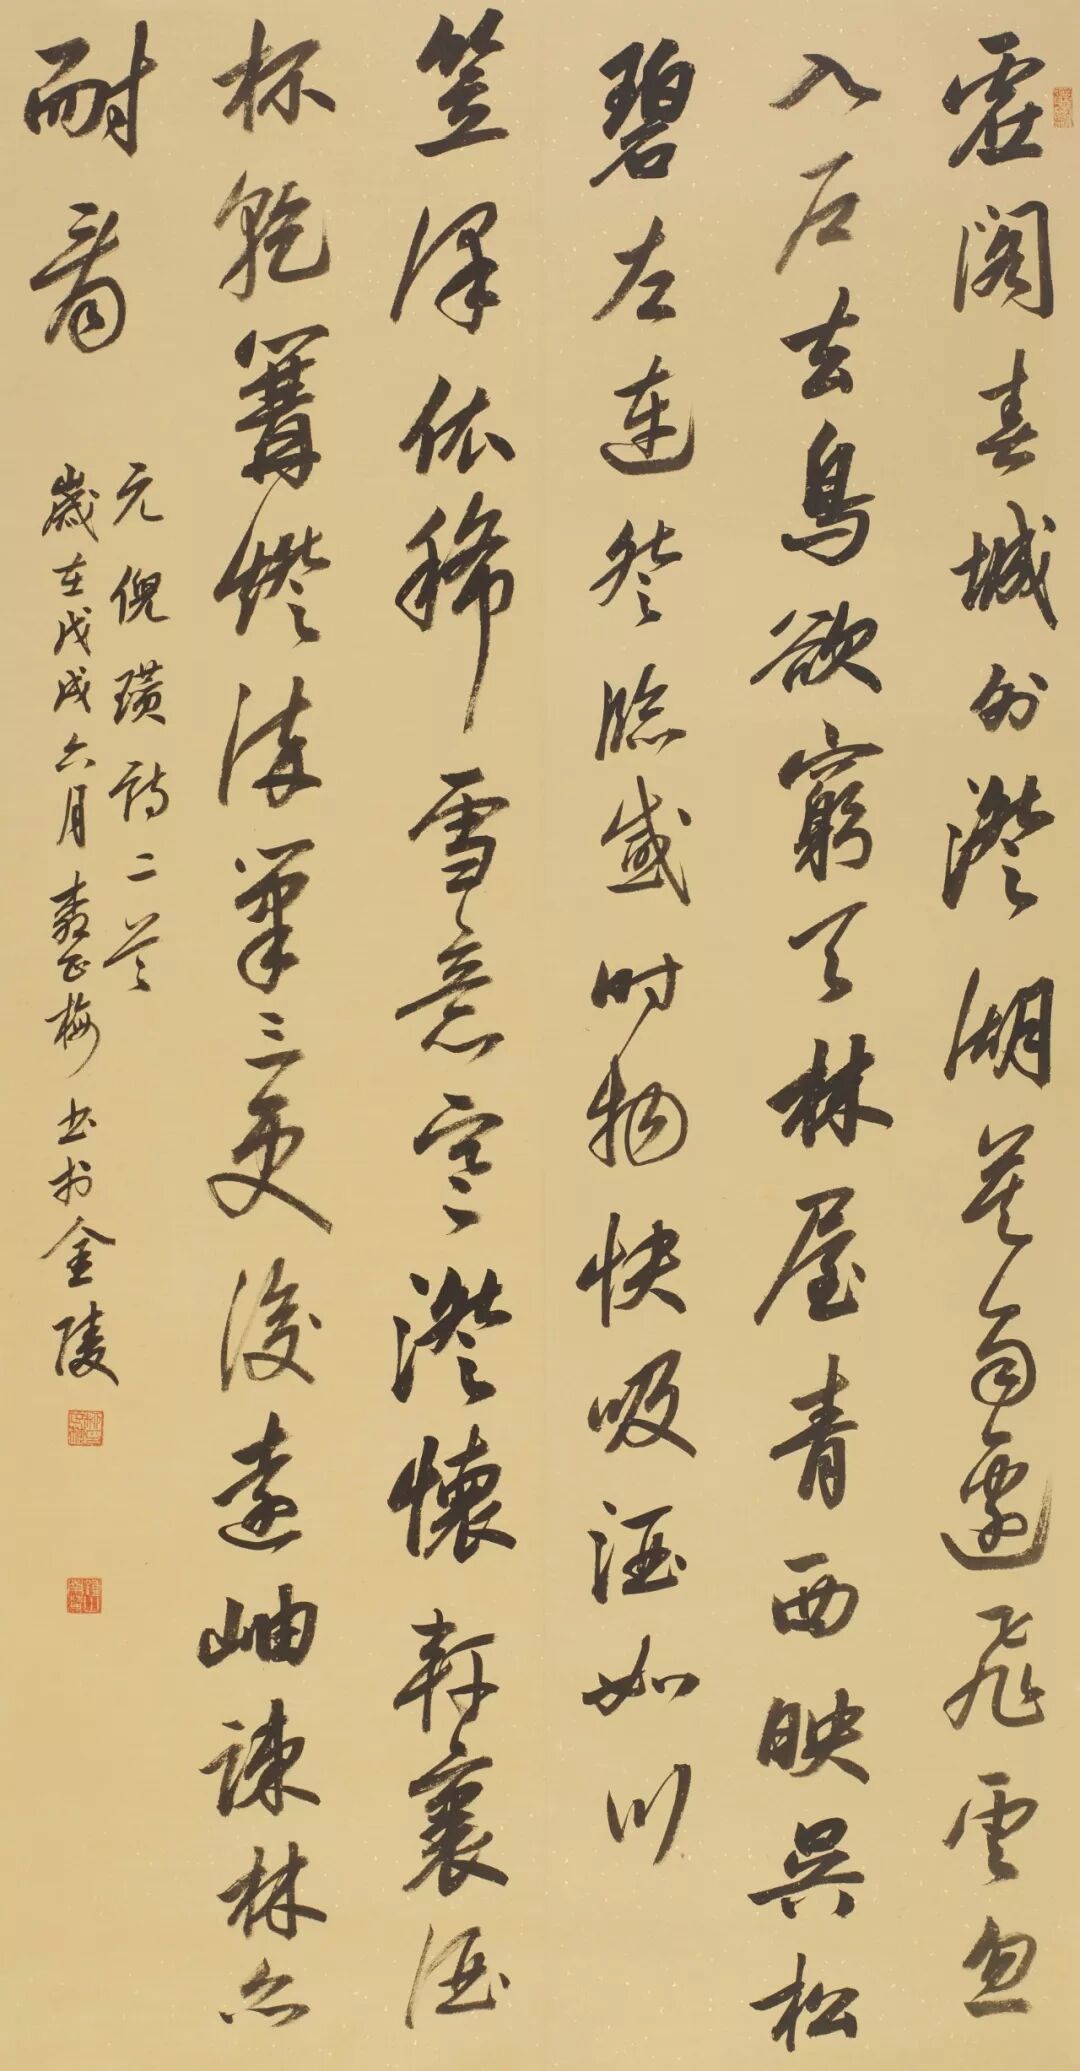 虚閣春城外澄湖莫雨邊飛雲忽
入户去鳥欲窮天林屋青西映吴松
碧左連登臨感時物快吸酒如川
笠澤依稀雪意寒澄懷軒裏酒
杯乾篝燈染筆三更後遠岫疎林亦
耐看
元倪瓚詩二首
歲在戊戌六月正梅書於金陵